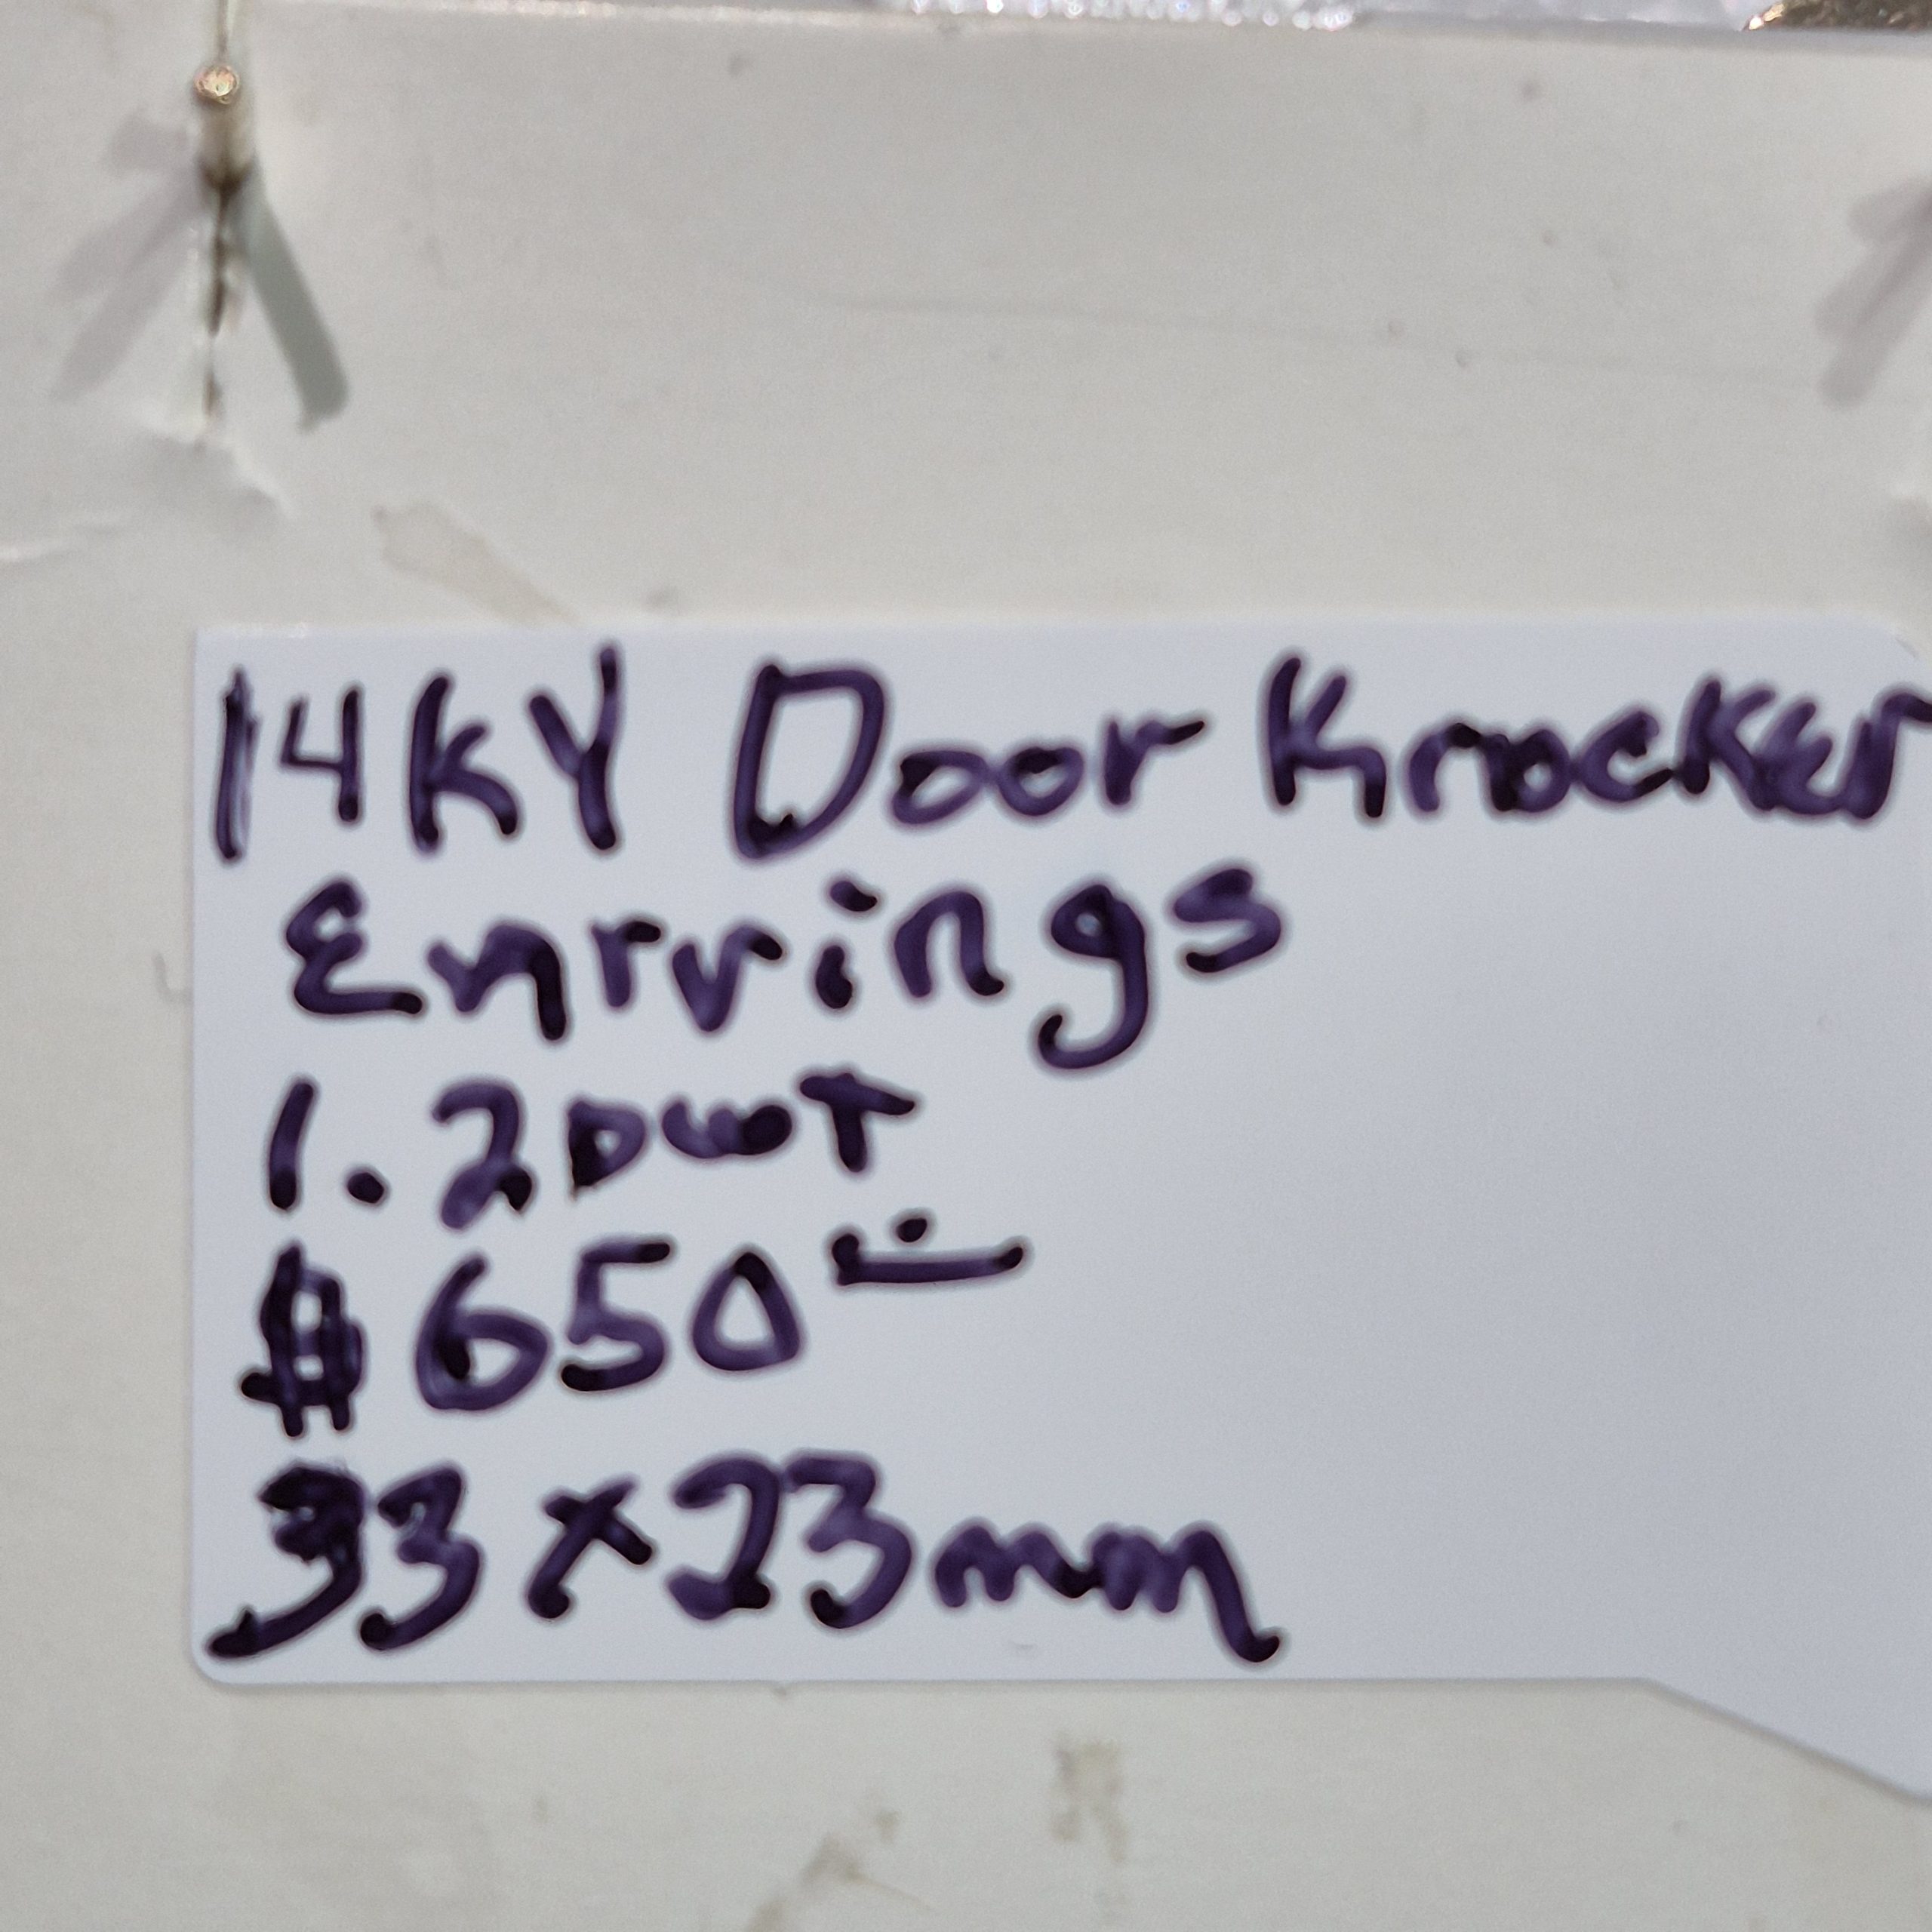 14KY Door Knocker
Earrings
1.2DWT
$650
33x23mm